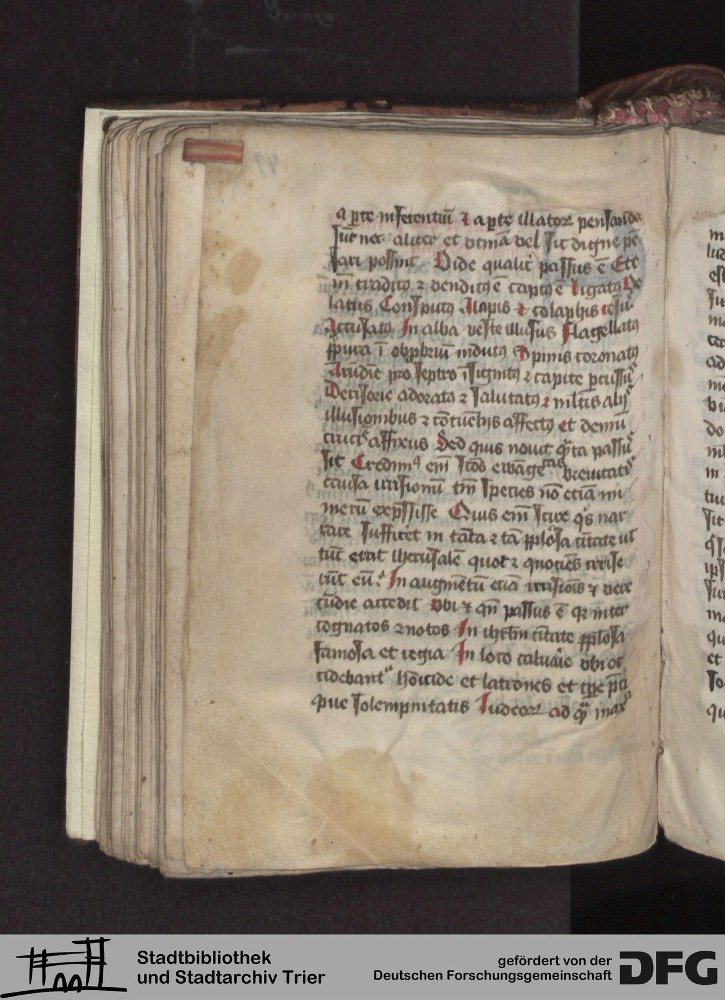 a pte inferentiū ⁊ a pte illatoꝝ pensanda
sūt nec aliter et vtinā vel sic digne pē
sari possint Vide qualit' passus ē Ecce
tradit⁹ ⁊ vendit⁹ ē capt⁹ ē ligat⁹ ve
latus Consput⁹ Alapis ⁊ colaphis cesus
Accusat⁹ In alba veste illusus Flagellat⁹
ī obpbrium indut⁹ Spinis coronat⁹
Arūdīe pro septro īsignit⁹ ⁊ capite pcuss⁹
Derisorie adorat⁹ ⁊ salutat⁹ ⁊ mltis alijs
illusionibus ⁊ cōtūelijs affect⁹ et demū
cruci affixus Sed quis novit quāta passus
sit Credim⁹ eīm scōs ewāgetas breuitatis
causa irrisionū tm̄ species nō etiā nu
merū expssisse Quis eīm scire q̄s nar
rare sufficet in tāta ⁊ tā pplosa ciuitate vt
tūc erat iherusalē quot ⁊ quociēs irrise
rūt eū? In augmētū etiā irrisiōis ⁊ vere
cūdie accedit vbi ⁊ qn̄ passus ē qꝛ inter
cognatos ⁊ notos In ihrlm ciuitate pplosa
famosa et regia In loco caluarie vbi oc
cidebant' homicide et latrones et tpe
pue solempnitatis Iudeoꝝ ad quā max
Stadtbibliothek
und Stadtarchiv Trier
gefördert von der
Deutschen Forschungsgemeinschaft
DFG